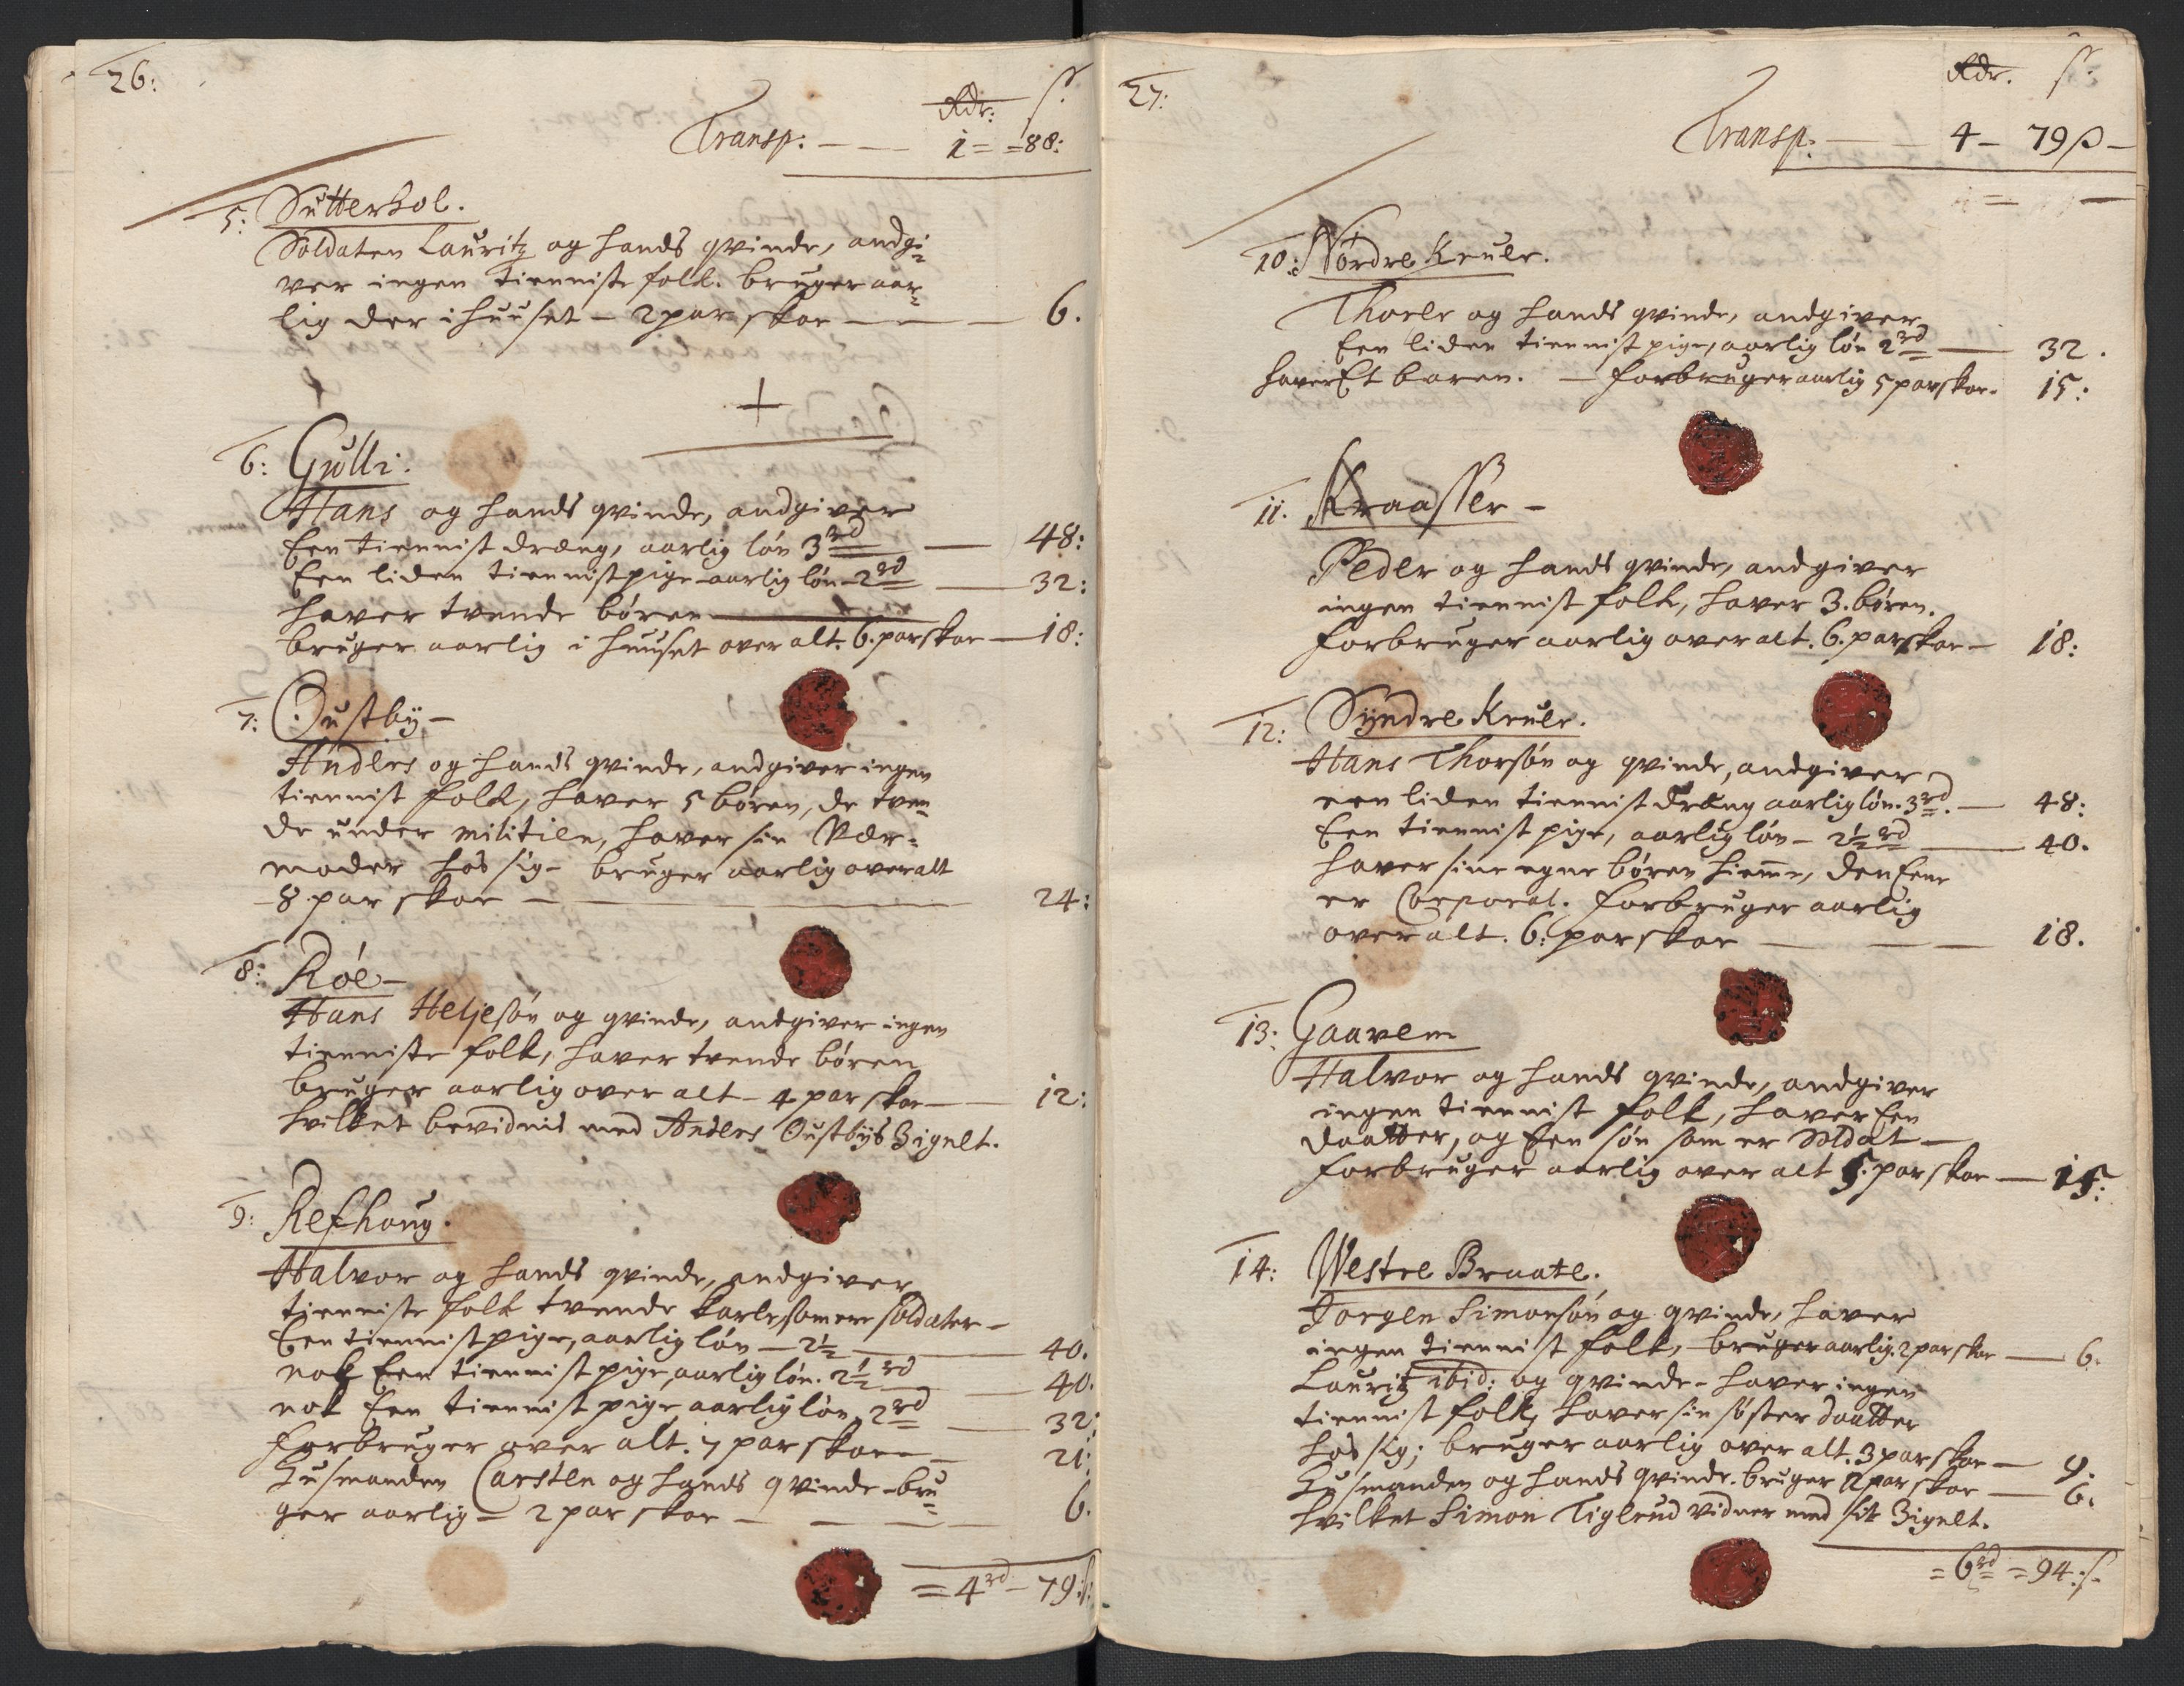 26:
Rdr: s.
Transp: — — 1 = = 88:
5: Sutterhol.
Soldaten Lauritz og hands qvinde, andgi=
ver ingen tienniste folk. bruger aar=
lig der i huuset — 2 par skoe — — 6.
+
6: Gulli.
Hans og hands qvinde, andgiver
Een tiennist dræng, aarlig løn 3 rd — 48:
Een liden tiennistpige aarlig løn — 2 rd — 32:
haver tvende børen
bruger aarlig i huuset over alt. 6. par skoe — 18:
7: Oustbÿ —
Anders og hands qvinde, andgiver ingen
tiennist folk, haver 5 børen, de tven=
de under militien, haver sin Vær=
moder hos sig — bruger aarlig over alt
— 8 par skoe — 24:
8: Röe —
Hans Heljesøn og qvinde, andgiver ingen
tienniste folk, haver tvende børen
bruger aarlig over alt — 4 par skoe — 12:
hvilket bevidnis med Anders Oustbÿs Zignet.
9: Refhoug.
Halvor og hands qvinde, andgiver
tienniste folk tvende karle som ere soldater —
Een tiennistpige, aarlig løn — 2½ — 40.
nok Een tiennist pige, aarlig løn. 2½ rd — 40.
nok Een tiennist pige aarlig løn 2 rd — 32:
forbruger over alt. 7 par skoe — 21:
Husmanden Carsten og hands qvinde — bru=
ger aarlig — 2 par skoe — — — 6.
= 4 rd — 79: s:
27:
Rdr. s.
Transp: — — 4 — 79 s —
10: Nordre Krule.
Thorle og hands qvinde, andgiver
Een liden tiennist pige, aarlig løn 2 rd — 32.
haver Et baren. — forbruger aarlig 5 par skoe. 15:
11. Kraasser —
Peder og hands qvinde, andgiver
ingen tiennist folk, haver 3. børen.
forbruger aarlig over alt. 6. par skoe — 18:
12: Sÿndre Krule.
Hans Thorsøn og qvinde, andgiver
een liden tiennist dræng aarlig løn. 3 rd. — 48:
Een tiennist pige, aarlig løn — 2½ rd — 40.
haver sine egne børen hiemme, den Eene
er Corporal. forbruger aarlig
over alt. 6: par skoe — — — 18.
13: Gaarem
Halvor og hands qvinde, andgiver
ingen tiennist folk, haver Een
daatter, og Een søn som er Soldat —
forbruger aarlig over alt 5. par skoe — 15:
14: Westre Braate.
Jorgen Simonsøn og qvinde, haver
ingen tiennist folk, — bruger aarlig. 2 par skoe — 6.
Lauritz ibid: og qvinde — haver ingen
tiennist folk, haver sin søster daatter
hos sig; bruger aarlig over alt. 3 par skoe — 9.
Husmanden og hands qvinde. bruger 2 par skoe — 6.
hvilket Simon Tiglrud vidner med sit Zignet.
= 6 rd = 94: s.